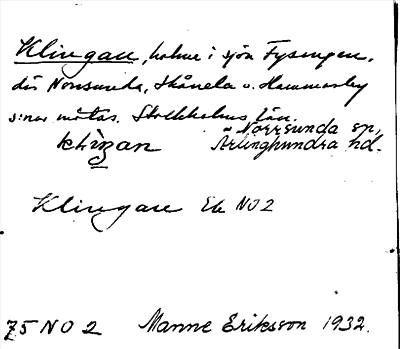 Klingan, holme i sjön Fysingen,
där Norrsunda, Skånela o. Hammarby
s:nar mötas. Stockholms län.
Norrsunda sn,
klìŋan Ärlinghundra hd.
Klingan Ek NO2
75 NO 2 Manne Eriksson 1932.